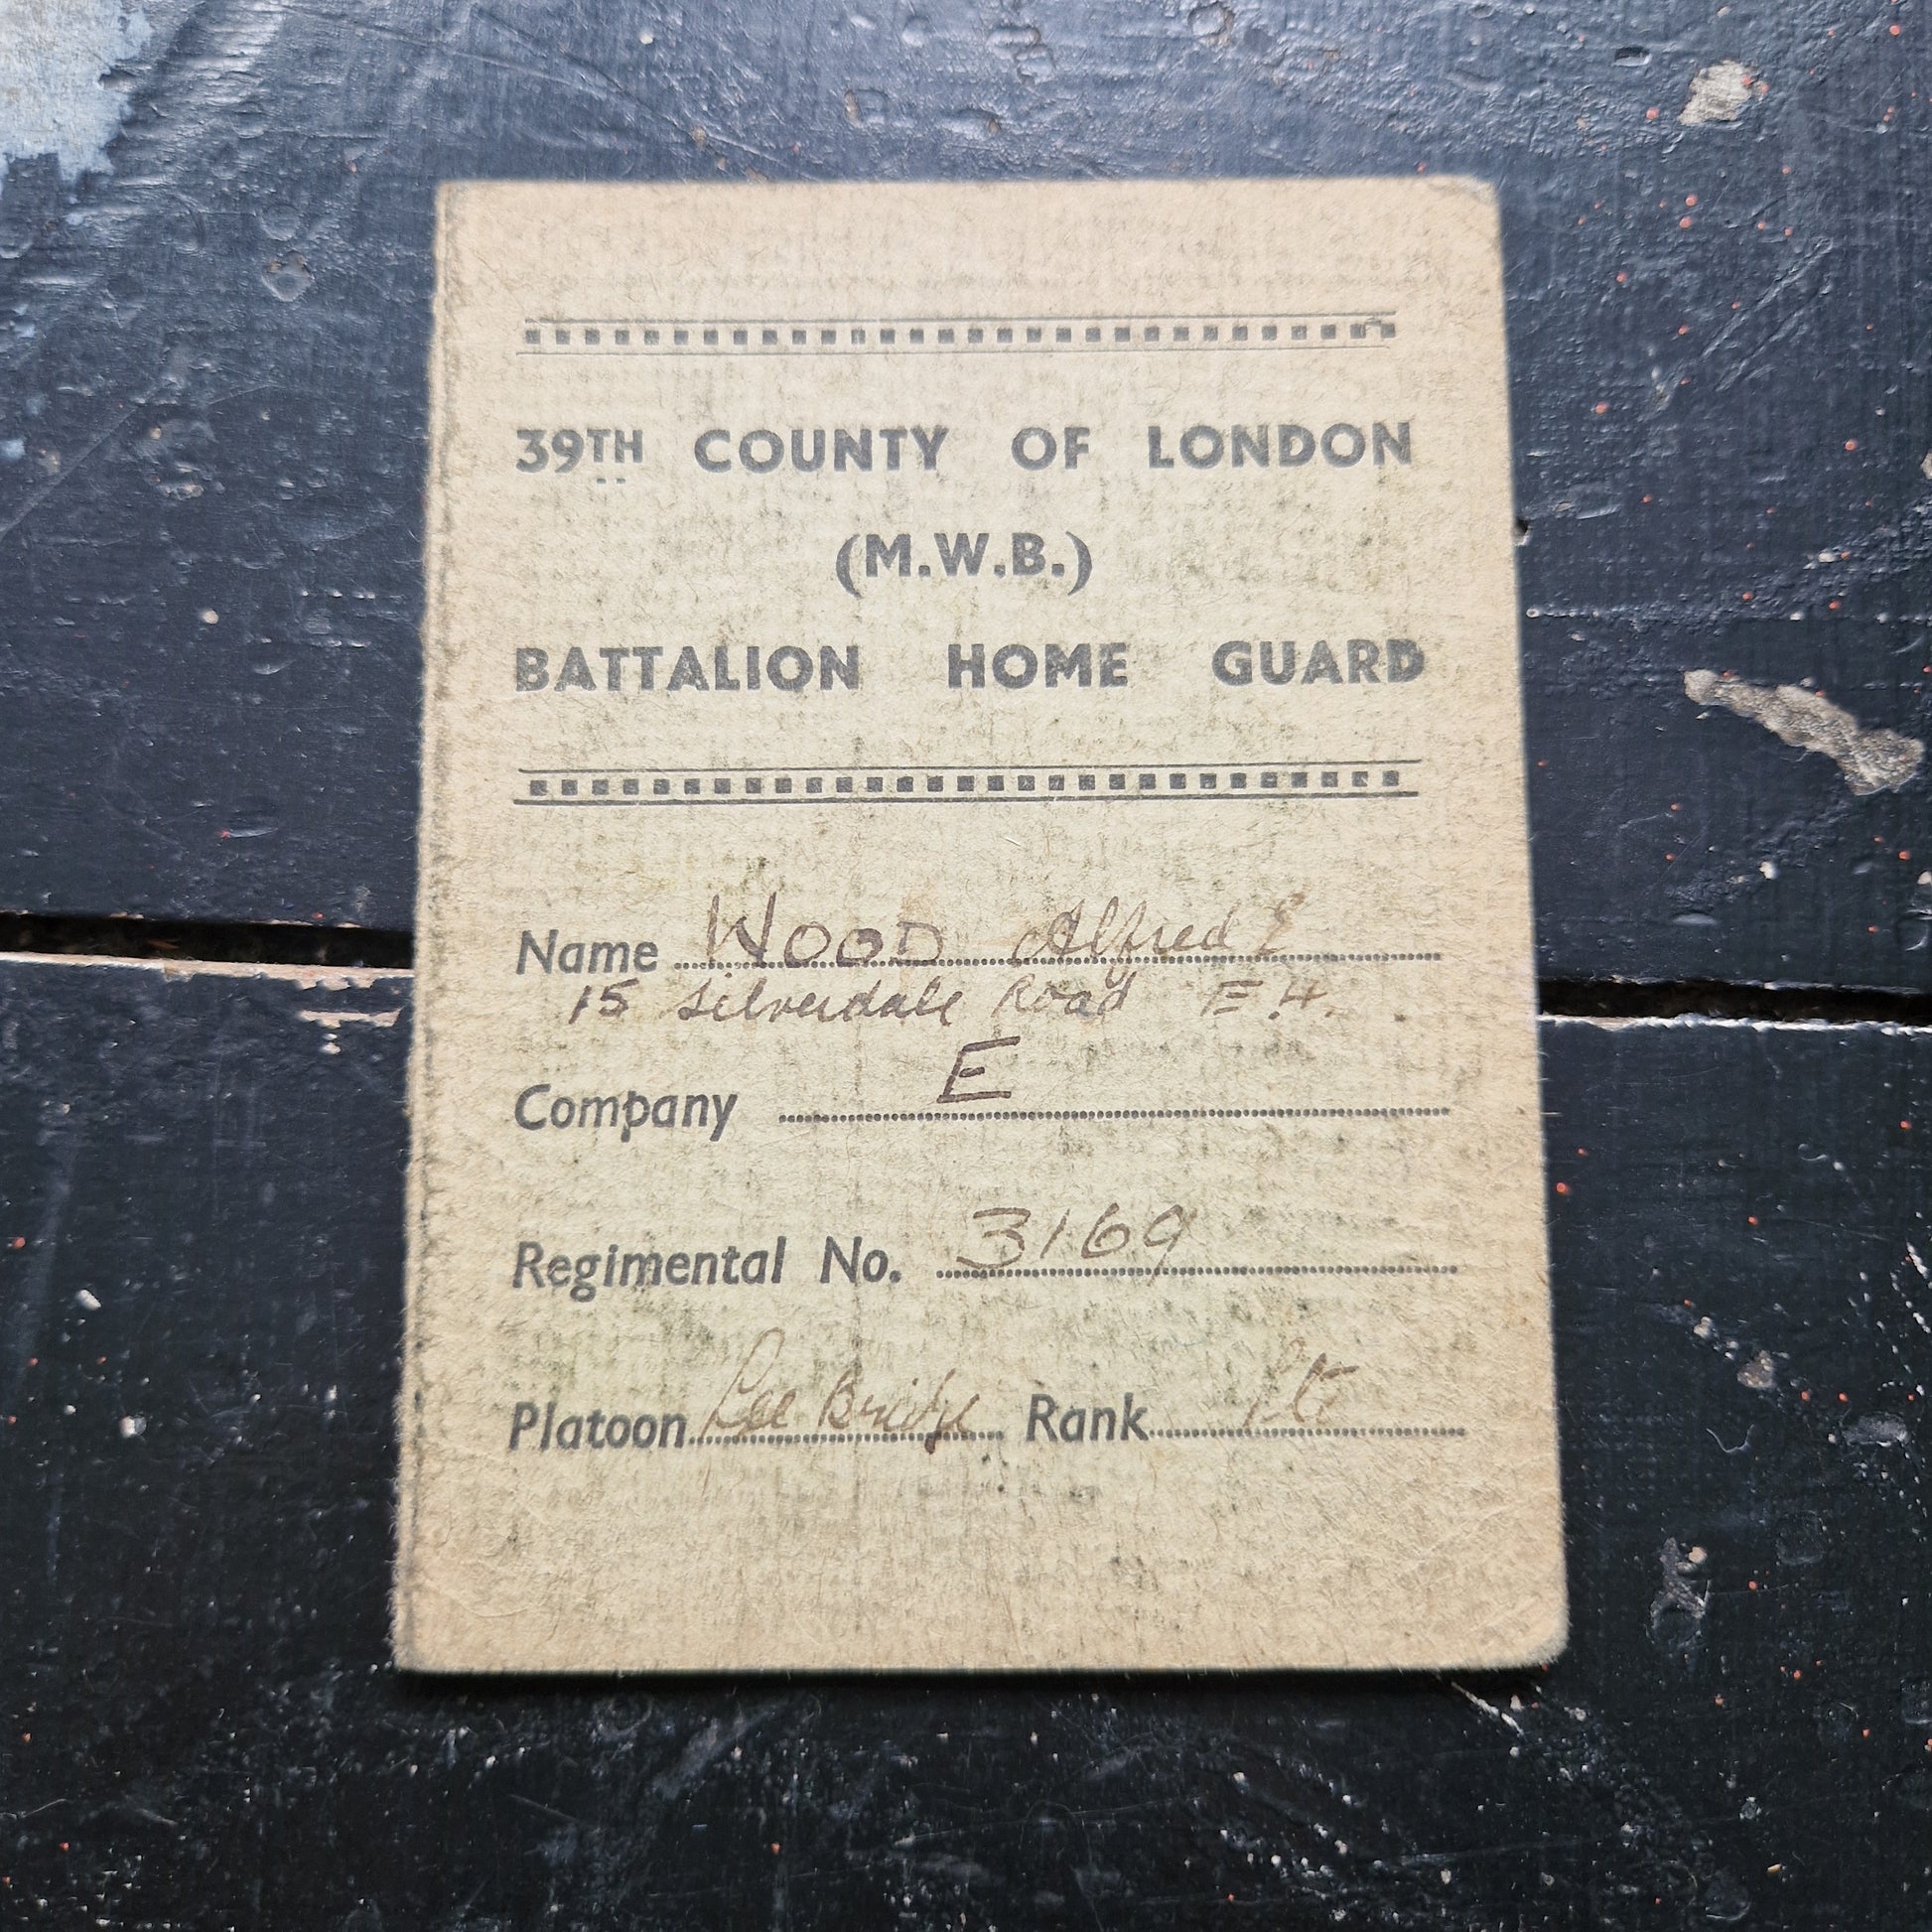 39TH COUNTY OF LONDON
(M.W.B.)
BATTALION HOME GUARD
Name WOOD Alfred E
15 Silverdale Road E.4.
Company E
Regimental No. 3169
Platoon Lee Bridge Rank Pte